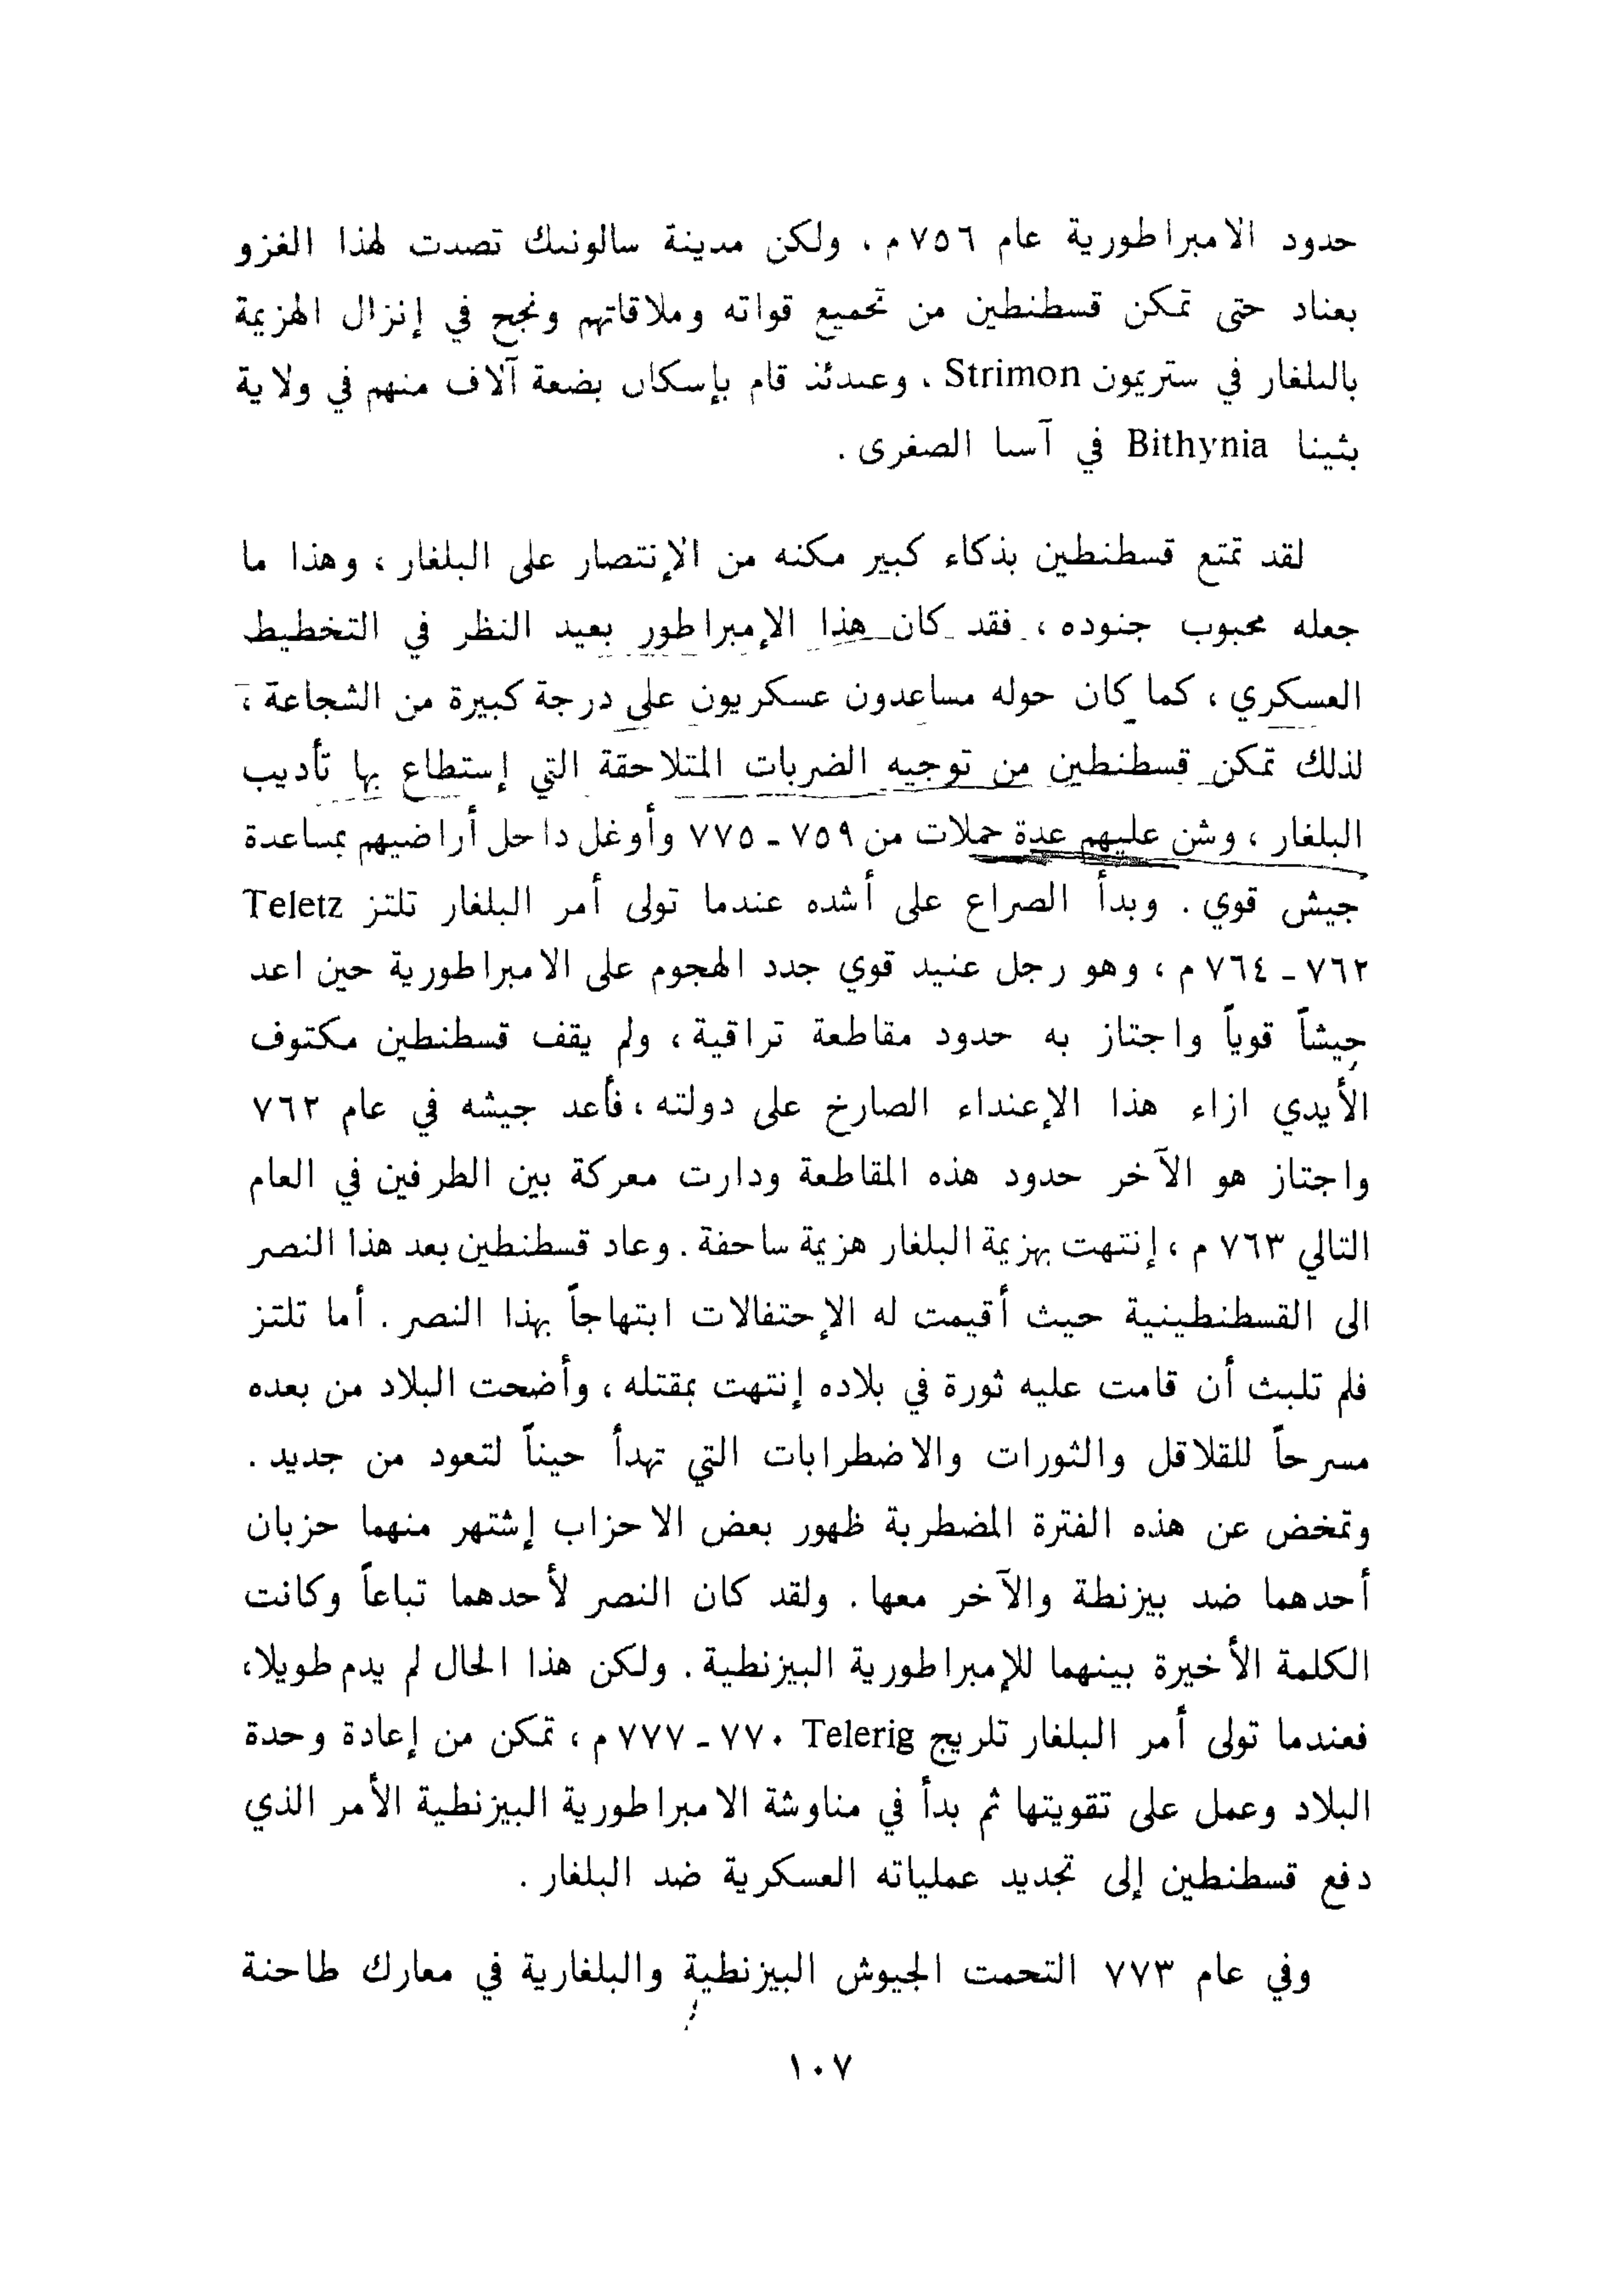 حدود الامبراطورية عام ٧٥٦ م ، ولكن مدينة سالونيك تصدت لهذا الغزو
بعناد حتى تمكن قسطنطين من تجميع قواته وملاقاتهم ونجح في إنزال الهزيمة
بالبلغار في ستريمون Strimon ، وعندئذ قام بإسكان بضعة آلاف منهم في ولاية
بثينا Bithynia في آسيا الصغرى .
لقد تمتع قسطنطين بذكاء كبير مكنه من الإنتصار على البلغار ، وهذا ما
جعله محبوب جنوده ، فقد كان هذا الإمبراطور بعيد النظر في التخطيط
العسكري ، كما كان حوله مساعدون عسكريون على درجة كبيرة من الشجاعة ،
لذلك تمكن قسطنطين من توجيه الضربات المتلاحقة التي إستطاع بها تأديب
البلغار ، وشن عليهم عدة حملات من ٧٥٩ - ٧٧٥ وأوغل داخل أراضيهم بمساعدة
جيش قوي . وبدأ الصراع على أشده عندما تولى أمر البلغار تلتز Teletz
٧٦٢ - ٧٦٤ م ، وهو رجل عنيد قوي جدد الهجوم على الامبراطورية حين اعد
جيشاً قوياً واجتاز به حدود مقاطعة تراقية ، ولم يقف قسطنطين مكتوف
الأيدي ازاء هذا الإعتداء الصارخ على دولته ، فأعد جيشه في عام ٧٦٢
واجتاز هو الآخر حدود هذه المقاطعة ودارت معركة بين الطرفين في العام
التالي ٧٦٣ م ، إنتهت بهزيمة البلغار هزيمة ساحقة . وعاد قسطنطين بعد هذا النصر
الى القسطنطينية حيث أقيمت له الإحتفالات ابتهاجاً بهذا النصر . أما تلتز
فلم تلبث أن قامت عليه ثورة في بلاده إنتهت بمقتله ، وأضحت البلاد من بعده
مسرحاً للقلاقل والثورات والاضطرابات التي تهدأ حيناً لتعود من جديد .
وتمخض عن هذه الفترة المضطربة ظهور بعض الاحزاب إشتهر منهما حزبان
أحدهما ضد بيزنطة والآخر معها . ولقد كان النصر لأحدهما تباعاً وكانت
الكلمة الأخيرة بينهما للإمبراطورية البيزنطية . ولكن هذا الحال لم يدم طويلا،
فعندما تولى أمر البلغار تلريج Telerig ٧٧٠ - ٧٧٧ م ، تمكن من إعادة وحدة
البلاد وعمل على تقويتها ثم بدأ في مناوشة الامبراطورية البيزنطية الأمر الذي
دفع قسطنطين إلى تجديد عملياته العسكرية ضد البلغار .
وفي عام ٧٧٣ التحمت الجيوش البيزنطية والبلغارية في معارك طاحنة
١٠٧